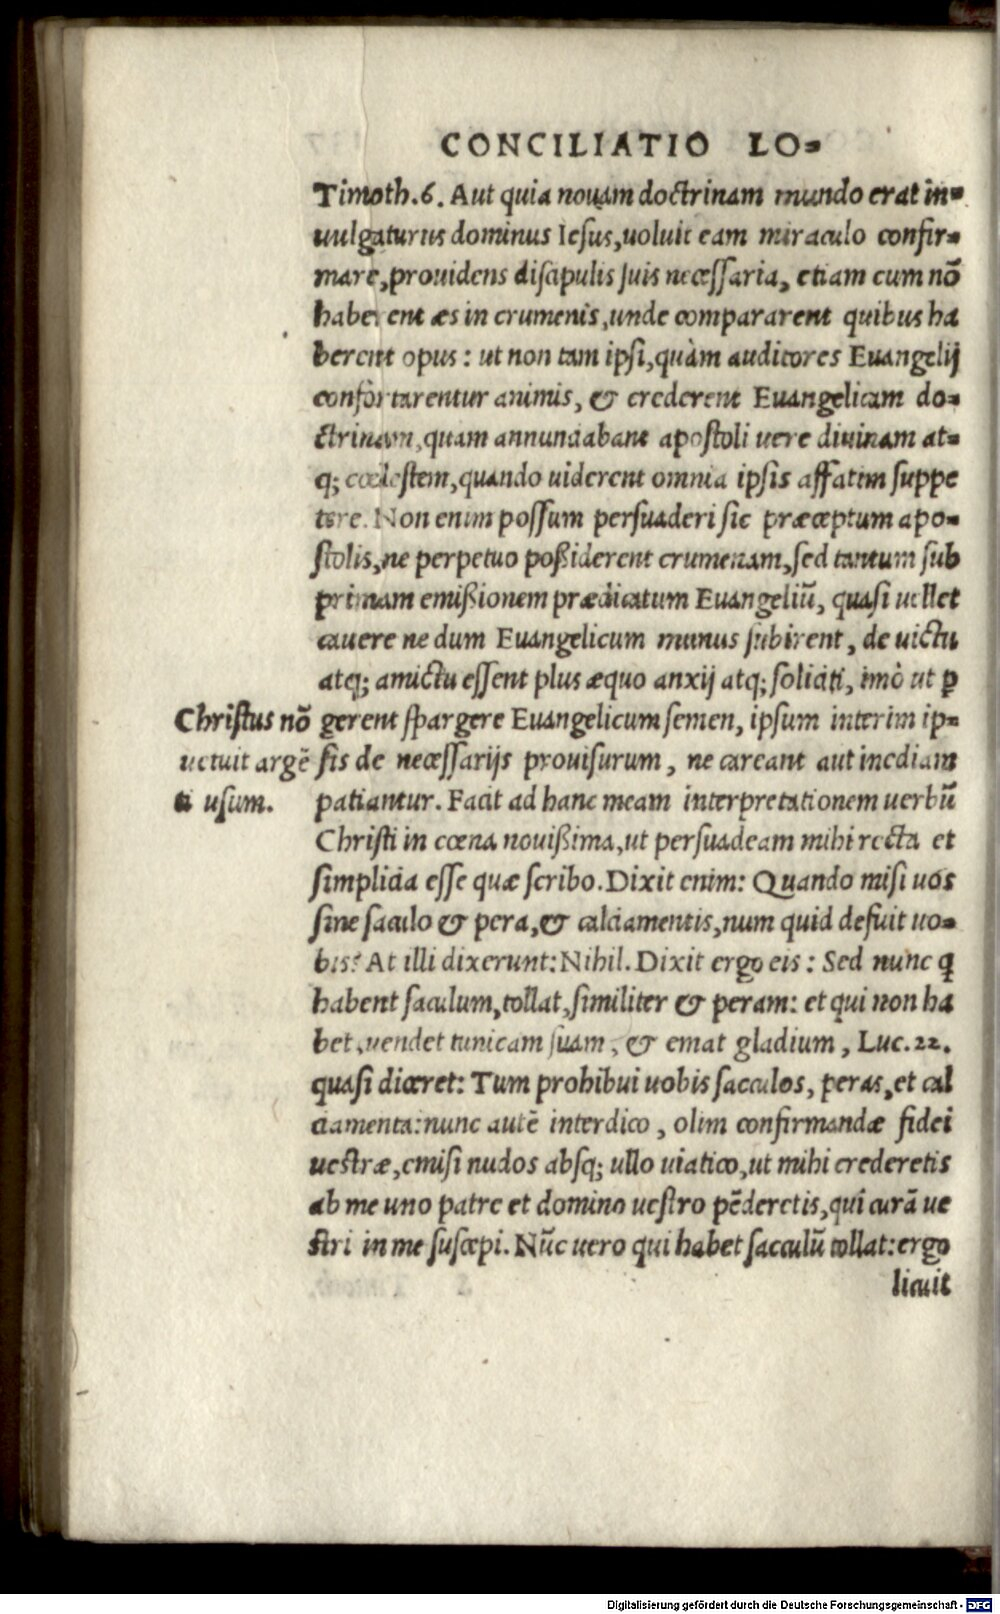 CONCILIATIO LO=
Timoth.6. Aut quia nouam doctrinam mundo erat in=
uulgaturus dominus Iesus,uoluit eam miraculo confir=
mare,prouidens discipulis suis necessaria, etiam cum nō
haberent æs in crumenis,unde compararent quibus ha
berent opus: ut non tam ipsi,quàm auditores Euangelij
confortarentur animis, & crederent Euangelicam do=
ctrinam,quam annunciabant apostoli uere diuinam at=
q; cœlestem,quando uiderent omnia ipsis affatim suppe
tere. Non enim possum persuaderi sic præceptum apo=
stolis,ne perpetuo poßiderent crumenam,sed tantum sub
primam emißionem prædicatum Euangeliū, quasi uellet
cauere ne dum Euangelicum munus subirent, de uictu
atq; amictu essent plus æquo anxij atq; soliciti, imò ut ꝑ
Christus nō
uetuit argē
ti usum.
gerent spargere Euangelicum semen, ipsum interim ip=
sis de necessarijs prouisurum, ne careant aut inediam
patiantur. Facit ad hanc meam interpretationem uerbū
Christi in cœna nouißima,ut persuadeam mihi recta et
simplicia esse quæ scribo. Dixit enim: Quando misi uos
sine sacculo & pera,& calciamentis,num quid defuit uo=
bis? At illi dixerunt: Nihil. Dixit ergo eis: Sed nunc q̄
habent saculum,tollat,similiter & peram: et qui non ha
bet,uendet tunicam suam, & emat gladium, Luc.22.
quasi diceret: Tum prohibui uobis sacculos, peras,et cal
ciamenta:nunc autē interdico, olim confirmandæ fidei
uestræ,emisi nudos absq; ullo uiatico,ut mihi crederetis
ab me uno patre et domino uestro pēderetis,qui curā ue
stri in me suscepi. Nūc uero qui habet sacculū tollat: ergo
licuit
Digitalisierung gefördert durch die Deutsche Forschungsgemeinschaft - DFG